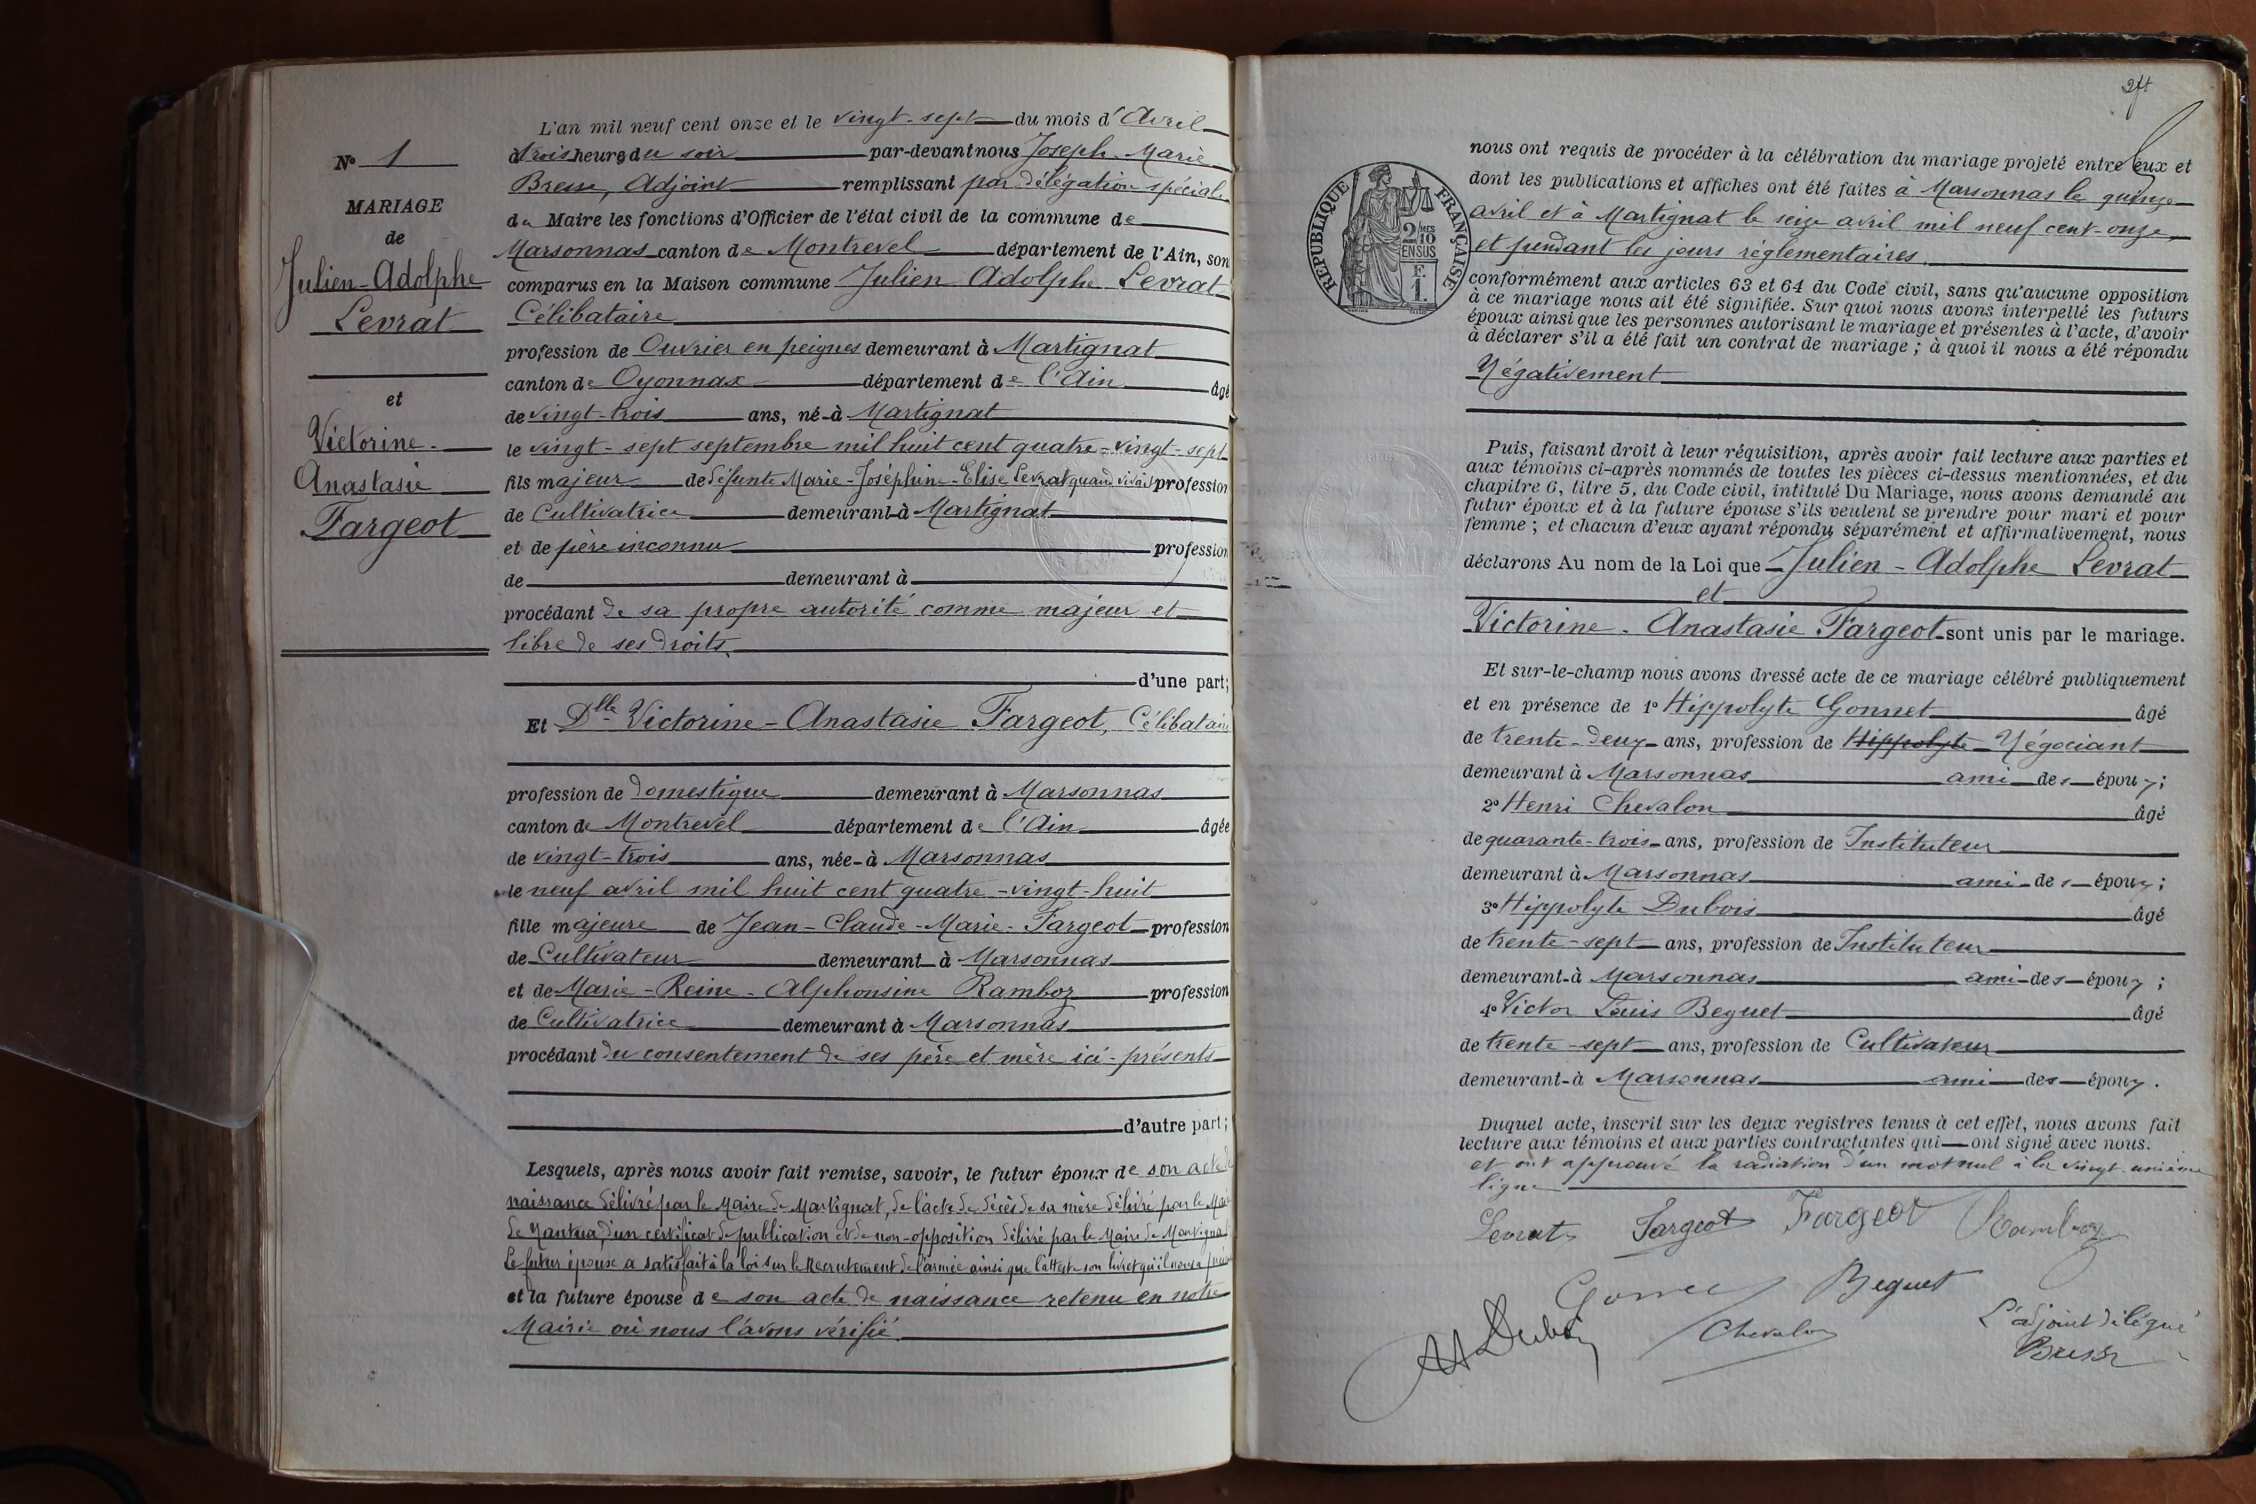 N° 1
MARIAGE
de
Julien-Adolphe
Levrat
et
Victorine-
Anastasie
Fargeot
L'an mil neuf cent onze et le vingt-sept du mois d'Avril
à trois heures du soir par-devant nous Joseph-Marie
Bresse, Adjoint remplissant par délégation spéciale
du Maire les fonctions d'Officier de l'état civil de la commune de
Marsonnas canton de Montrevel département de l'Ain, son
comparus en la Maison commune Julien Adolphe Levrat
Célibataire
profession de Ouvrier en peignes demeurant à Martignat
canton de Oyonnax département de l'Ain âgé
de vingt-trois ans, né à Martignat
le vingt-sept septembre mil huit cent quatre-vingt-sept
fils majeur de défunte Marie-Joséphine-Elise Levrat quand vivait profession
de Cultivatrice demeurant à Martignat
et de père inconnu profession
de demeurant à
procédant de sa propre autorité comme majeur et
libre de ses droits.
d'une part;
Et Dlle Victorine-Anastasie Fargeot, Célibataire
profession de domestique demeurant à Marsonnas
canton de Montrevel département de l'Ain âgée
de vingt-trois ans, née à Marsonnas
le neuf avril mil huit cent quatre-vingt-huit
fille majeure de Jean-Claude-Marie-Fargeot profession
de Cultivateur demeurant à Marsonnas
et de Marie-Reine-Alphonsine Ramboz profession
de Cultivatrice demeurant à Marsonnas
procédant du consentement de ses père et mère ici-présents
d'autre part;
Lesquels, après nous avoir fait remise, savoir, le futur époux de son acte de
naissance délivré par le Maire de Martignat, de l'acte de décès de sa mère délivré par le Maire
de Nantua, d'un certificat de publication et de non-opposition délivré par le Maire de Martignat
Le futur époux a satisfait à la loi sur le Recrutement de l'armée ainsi que l'atteste son livret qu'il nous a
et la future épouse de son acte de naissance retenu en notre
Mairie où nous l'avons vérifié.
nous ont requis de procéder à la célébration du mariage projeté entre eux et
dont les publications et affiches ont été faites à Marsonnas le quinze
avril et à Martignat le seize avril mil neuf cent-onze
et pendant les jours réglementaires.
conformément aux articles 63 et 64 du Code civil, sans qu'aucune opposition
à ce mariage nous ait été signifiée. Sur quoi nous avons interpellé les futurs
époux ainsi que les personnes autorisant le mariage et présentes à l'acte, d'avoir
à déclarer s'il a été fait un contrat de mariage ; à quoi il nous a été répondu
Négativement
RÉPUBLIQUE FRANÇAISE
2/10 MES
EN SUS
F.
1.
Puis, faisant droit à leur réquisition, après avoir fait lecture aux parties et
aux témoins ci-après nommés de toutes les pièces ci-dessus mentionnées, et du
chapitre 6, titre 5, du Code civil, intitulé Du Mariage, nous avons demandé au
futur époux et à la future épouse s'ils veulent se prendre pour mari et pour
femme ; et chacun d'eux ayant répondu séparément et affirmativement, nous
déclarons Au nom de la Loi que Julien-Adolphe Levrat
et
Victorine-Anastasie Fargeot sont unis par le mariage.
Et sur-le-champ nous avons dressé acte de ce mariage célébré publiquement
et en présence de 1° Hippolyte Gonnet âgé
de trente-deux ans, profession de Hippolyte Négociant
demeurant à Marsonnas ami des époux ;
2° Henri Chevalon âgé
de quarante-trois ans, profession de Instituteur
demeurant à Marsonnas ami des époux ;
3° Hippolyte Dubois âgé
de trente-sept ans, profession de Instituteur
demeurant à Marsonnas ami des époux ;
4° Victor Louis Beguet âgé
de trente-sept ans, profession de Cultivateur
demeurant à Marsonnas ami des époux.
Duquel acte, inscrit sur les deux registres tenus à cet effet, nous avons fait
lecture aux témoins et aux parties contractantes qui ont signé avec nous.
et ont approuvé la radiation d'un mot nul à la vingt-unième
ligne
Levrat Fargeot Fargeot Ramboz
Gonnet Beguet
H Dubois Chevalon L'adjoint délégué
Bresse